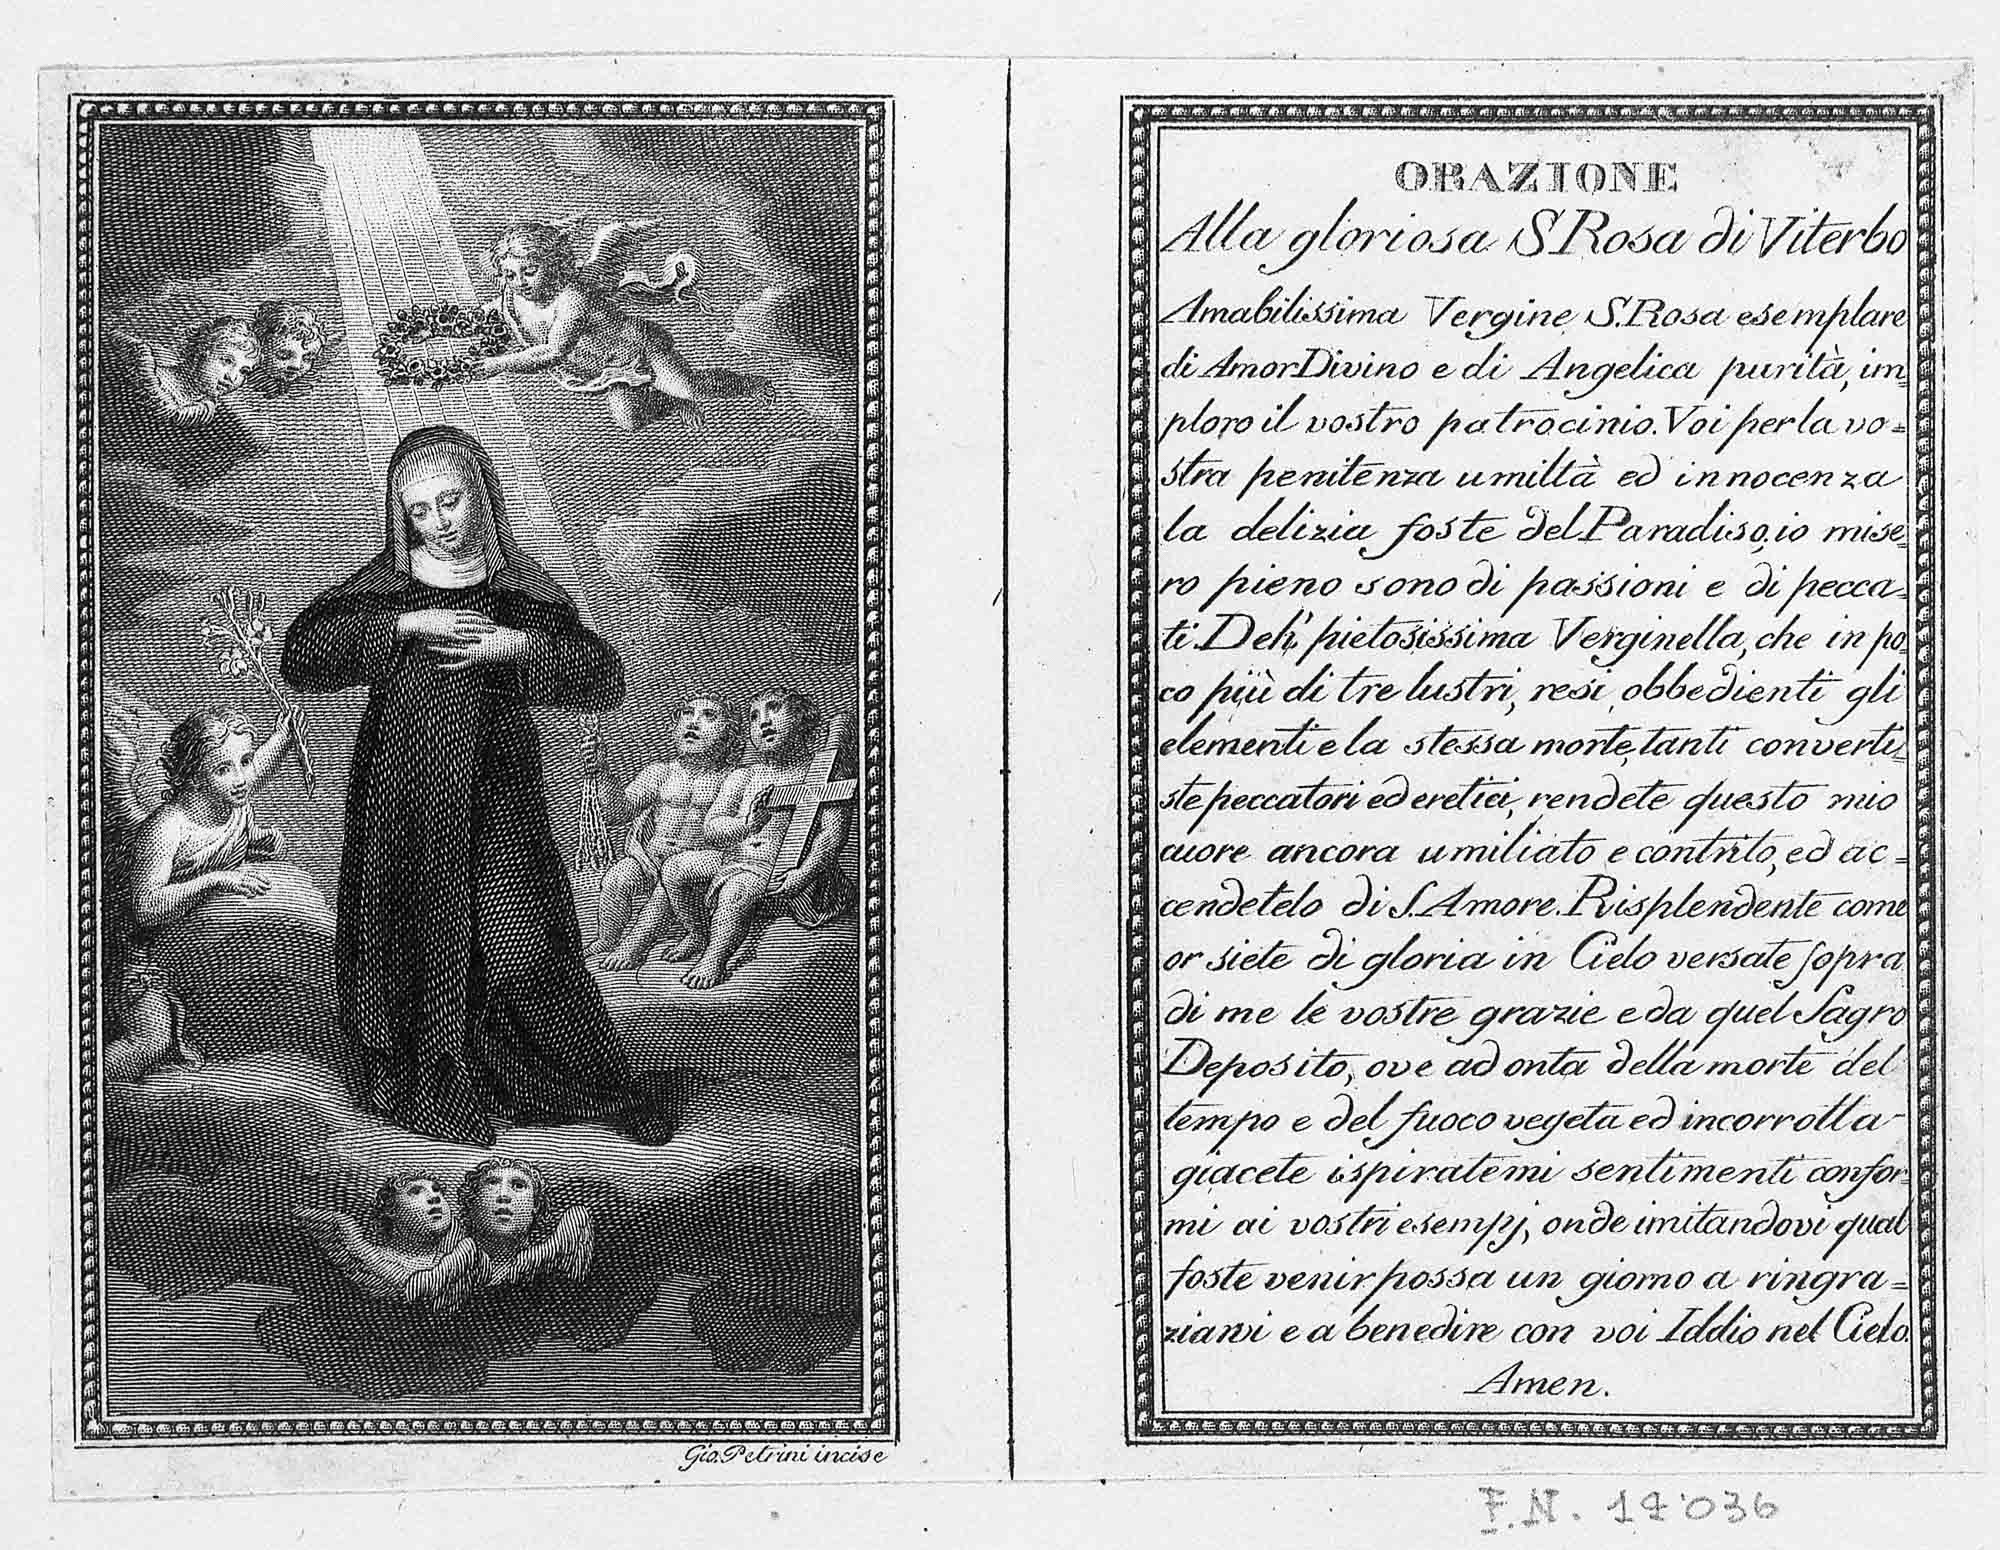 Gio. Petrini incise
ORAZIONE
Alla gloriosa S Rosa di Viterbo
Amabilissima Vergine S. Rosa esemplare
di Amor Divino e di Angelica purità, im=
ploro il vostro patrocinio. Voi per la vo=
stra penitenza umiltà ed innocenza
la delizia foste del Paradiso, io mise=
ro pieno sono di passioni e di pecca=
ti. Deh! pietosissima Verginella, che in po=
co più di tre lustri, resi obbedienti gli
elementi e la stessa morte, tanti converti=
ste peccatori ed eretici, rendete questo mio
cuore ancora umiliato e contrito, ed ac=
cendetelo di S. Amore. Risplendente come
or siete di gloria in Cielo versate sopra
di me le vostre grazie e da quel Sagro
Deposito, ove ad onta della morte del
tempo e del fuoco vegeta ed incorrotta
giacete ispiratemi sentimenti confor=
mi ai vostri esempj, onde imitandovi qual
foste venir possa un giorno a ringra=
ziarvi e a benedire con voi Iddio nel Cielo.
Amen.
F.N. 19036